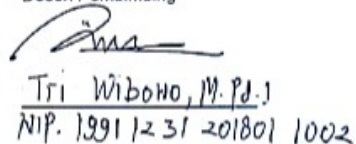 Dosen Pembimbing
Tri Wibowo, M.Pd.I
NIP. 19911231 201801 1002